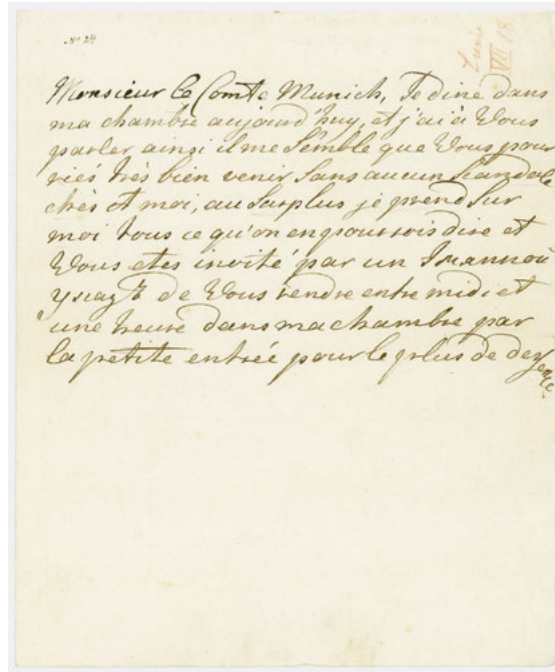 N° 24
VII 18
Monsieur le Comte Munich, Je dine dans
ma chambre aujourd'huy, et j'ai à Vous
parler ainsi il me semble que Vous pour
riés très bien venir sans aucun scandale
chès et moi, au surplus je prend sur
moi tous ce qu'on en pourrois dire et
Vous etes invité par un
de Vous rendre entre midi et
une heure dans ma chambre par
la petite entrée pour le plus de decence